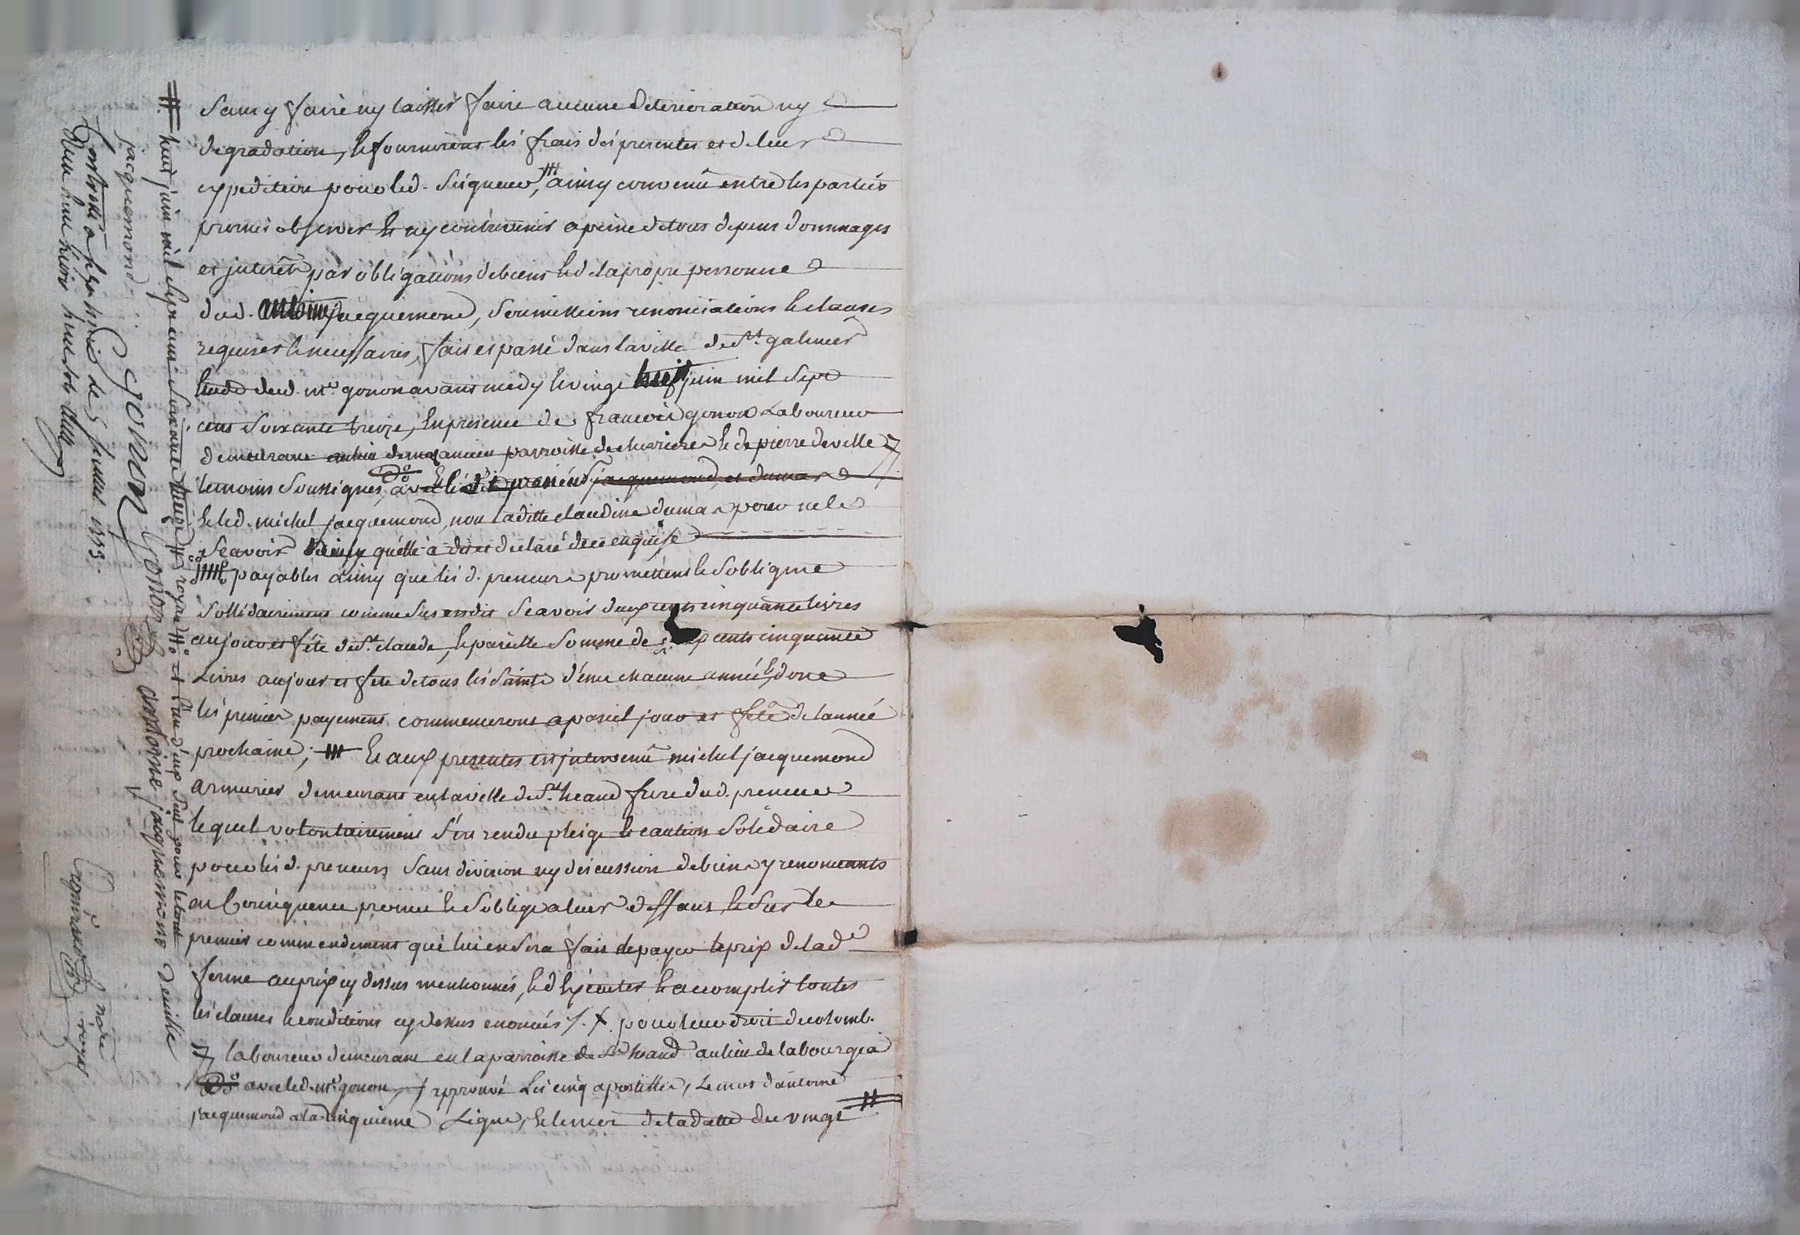 sans y faire ny laisser faire aucune deterioration ny
degradation, & fourniront les frais des presentes et de leur
expedition pour led. Seigneur, ainsy convenû entre les parties
promis observer & ny contrevenir a peine de tous depens dommages
et interêts par obligations de biens & de la propre personne
dud. antoine jacquemond, soumissions renonciations & clauses
requises & necessaires, fait et passé dans la ville de St. galmier
étude dud. me. gonon avant midy le vingt huit juin mil sept
cent soixante treize, en presence de francois gonon Laboureur
demeurant au lieu de parroisse de & de pierre deville
temoins soussignés, avec jacquemond et dumas
& led. michel jacquemond, non laditte claudine dumas pour ne le
scavoir ainsy qu'elle a dit et declaré de ce enquise
payables ainsy que les d. preneurs promettent & s'obligent
sollidairement comme sus est dit Scavoir deux cents cinquante livres
au jour et fête de St. claude, & pareille somme de deux cents cinquante
Livres au jour et fete de tous les saints d'une chacune année, & dont
les premiers payements commenceront a pareil jour et fête de l'année
prochaine; & aux presentes est intervenû michel jacquemond
armurier demeurant en la ville de St. heand frere dud. preneur
lequel volontairement s'est rendu pleige & caution solidaire
pour les d. preneurs sans division ny discussion de biens y renoncants
en Consequence promis & s'oblige a leur deffaut & sur le
premier commendement qui lui en sera fait de payer le prix de lad.
ferme au prix cy dessus mentionnés, & d'exécuter & accomplir toutes
les clauses & conditions cy dessus enoncées /. X. pour leur droit de colomb.
laboureur demeurant en la parroisse de St. heand au lieu de la bourgea
avec led. me. gonon, / approuvé Les cinq apostilles, Le mot d'antoine
jacquemond a la cinquieme Ligne, & le mot de la datte du vingt
huit juin mil sept cent soixante treize royal et l'un d'eux seul pour le tout
jacquemond
Gonon
Gonon antoine jacquemond deville
Controllé a
huit sols
notre royal